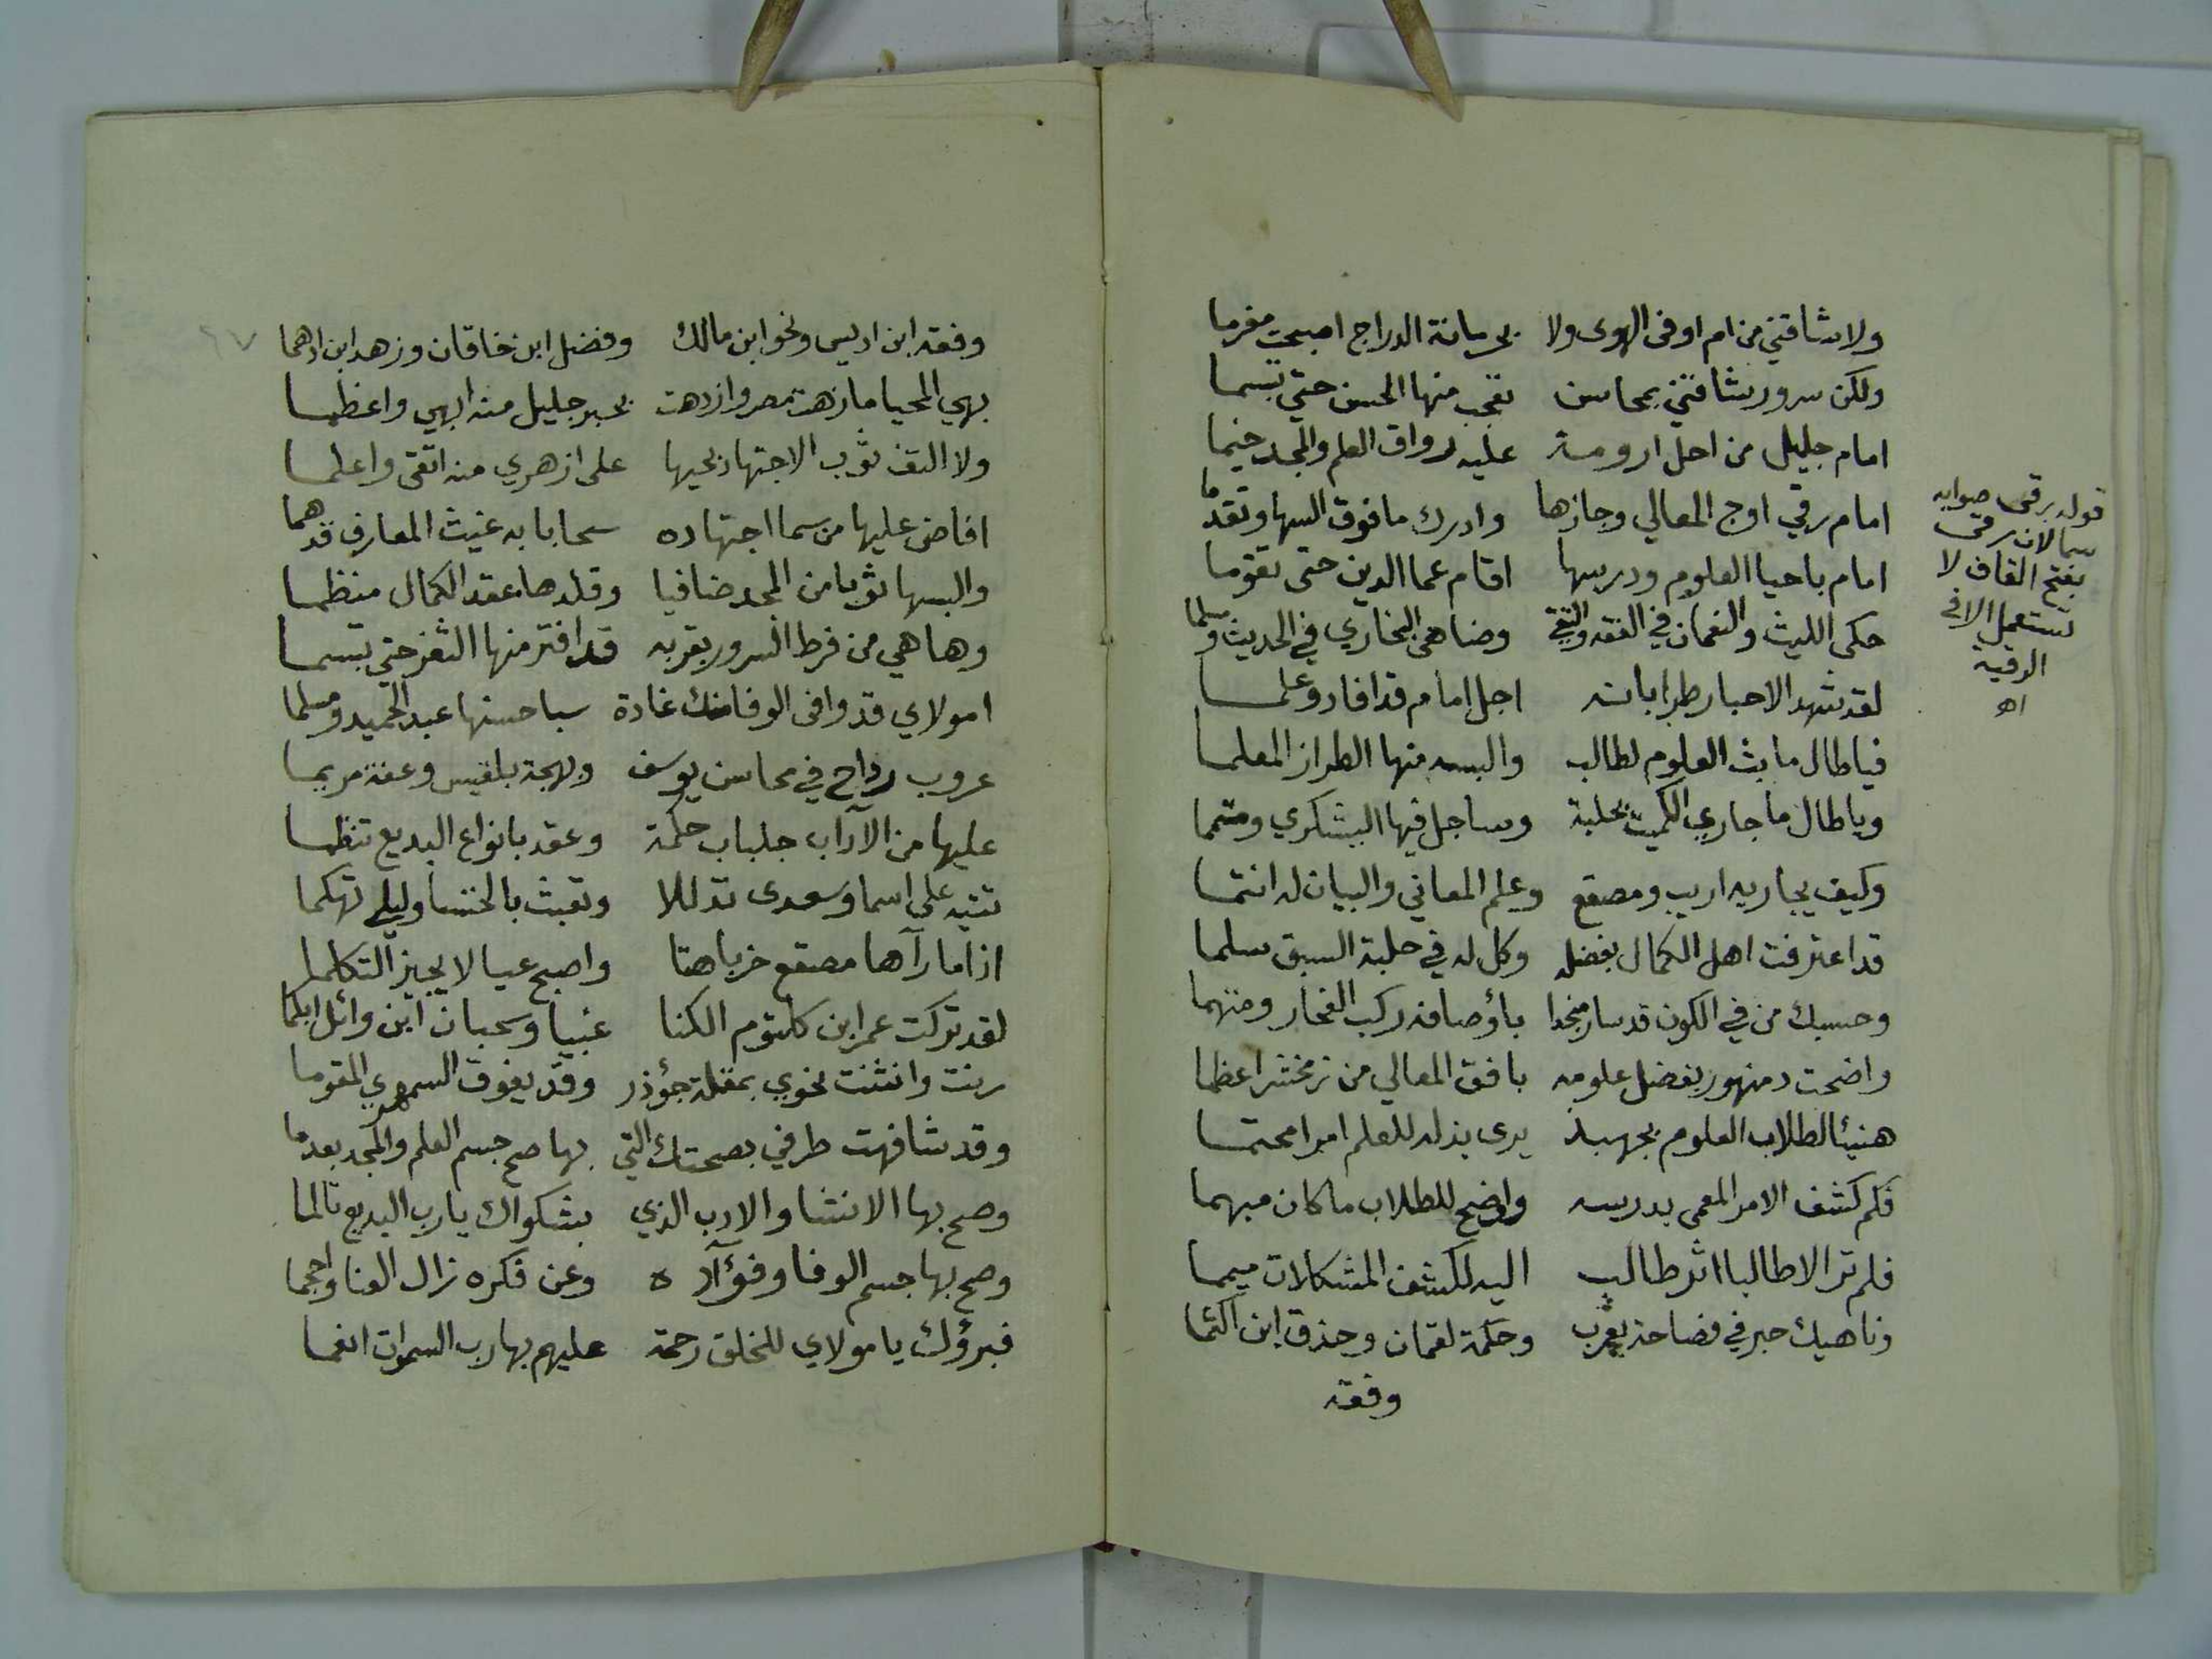 ولا شاقني من ام اوفى الهوى ولا بريانة الدراج اصبحت مغرما
ولكن سرور شاقني بمحاسن تعجب منها الحسن حتى تبسما
امام جليل من اجل ارومة عليه رواق العلم والمجد خيما
امام رقي اوج المعالي وجازها وادرك ما فوق السها وتقدما
امام باحيا العلوم ودرسها اقام عما الدين حتى تقوما
حكى الليث والنعمان في الفقه والتقي وضاهى البخاري في الحديث ومسلما
لقد شهد الاحبار طرا بانه اجل امام قد افاد وعلما
فيا طال ما بث العلوم لطالب والبسه منها الطراز المعلما
ويا طال ما جاري الكميت بحلبة وساجل فيها اليشكري ومتمما
وكيف يجاريه اريب ومصقع وعلم المعاني والبيان له انتما
قد اعترفت اهل الكمال بفضله وكل له في حلبة السبق سلما
وحسبك من في الكون قد سار منجدا باؤصافه ركب الفخار ومتهما
واضحت دمنهور بفضل علومه بافق المعالي من زمخشر اعظما
هنيئا لطلاب العلوم بجهبذ يرى بذله للعلم امرا محتما
فكم كشف الامر المعمى بدرسه واوضح للطلاب ما كان مبهما
فلم تر الا طالبا اثر طالب اليه لكشف المشكلات ميمما
وناهيك حبر في فصاحة يعرب وحكمة لقمان وحذق ابن اكثما
وفقه
قوله برقى صوابه
سما لان رقى
بفتح القاف لا
تستعمل الا في
الرقية
اه
وفقه ابن ادريس ونحو ابن مالك وفضل ابن خاقان وزهد ابن ادهما
بهي المحيا ما زهت مصر وازدهت بحبر جليل منه ابهي واعظما
ولا التف ثوب الاجتهاد بحيها على ازهري منه اتقى واعلما
افاض عليها من سما اجتهاده سحابا به غيث المعارف قد هما
والبسها ثوبا من المجد ضافيا وقلدها عقد الكمال منظما
وها هي من فرط السرور بقربه قد افتر منها الثغر حتى تبسما
امولاي قد وافى الوفا منك غادة سبا حسنها عبد الحميد ومسلما
عروب رداح في محاسن يوسف وبهجة بلقيس وعفة مريما
عليها من الآداب جلباب حكمة وعقد بانواع البديع تنظما
تتيه على اسما وسعدى تدللا وتعبث بالخنسا وليلى تهكما
اذا ما رآها مصقع خر باهتا واصبح عيا لا يجيز التكلما
لقد تركت عمر ابن كلثوم الكنا غبيا وسحبان ابن وائل ابكما
رنت وانثنت نحوي بمقلة جؤذر وقد يفوق السمهري المقوما
وقد شافهت طرفي بصحتك التي بها صح جسم العلم والمجد بعدما
وصح بها الانشا والادب الذي بشكواك يا رب البديع تالما
وصح بها جسم الوفا وفؤآده وعن فكره زال العنا واحجما
فبرؤك يا مولاي للخلق رحمة عليهم بها رب السموات انعما
٦٧